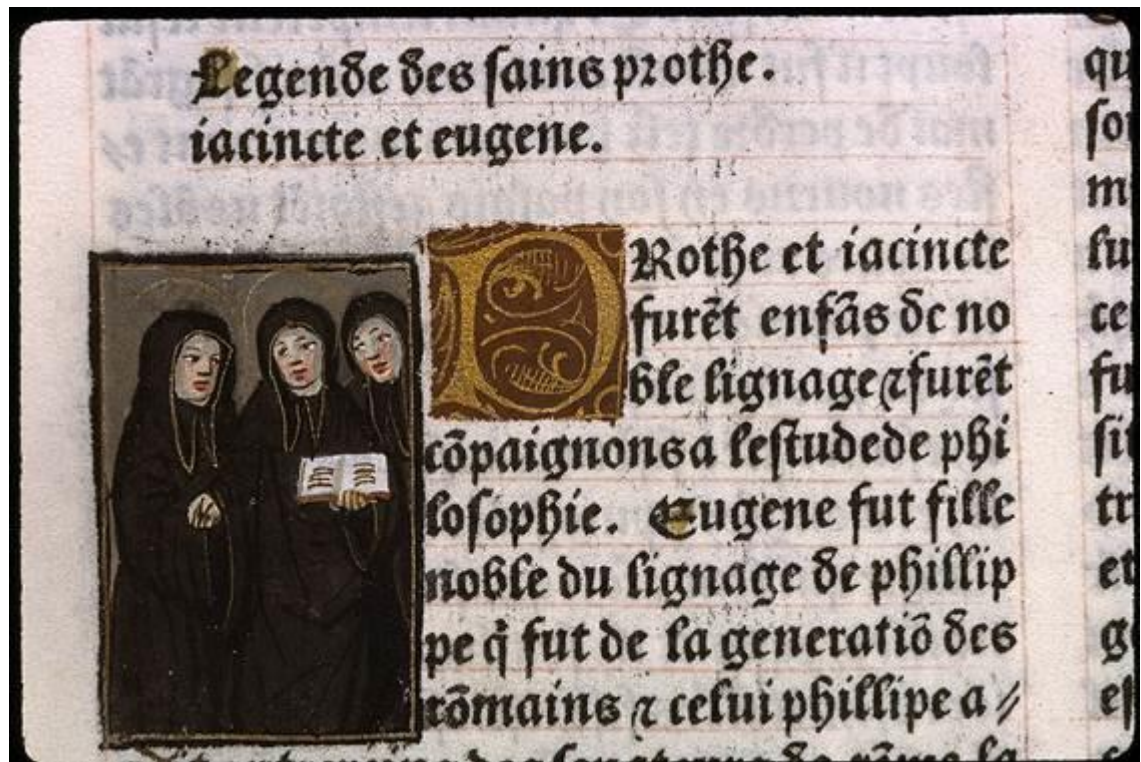 Legende des sains prothe.
iacincte et eugene.
PRothe et iacincte
furẽt enfãs de no
ble lignage ⁊ furẽt
cõpaignons a lestude de phi
losophie. Eugene fut fille
noble du lignage de phillip
pe q̃ fut de la generatiõ des
rõmains ⁊ celui phillipe a //